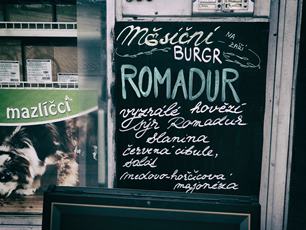 Měsíční
NA
ZÁŘÍ
BURGR
ROMADUR
vyzrálé hovězí
sýr Romadur
slanina
červená cibule,
salát
medovo-hořčicová
majonéza
mazlíčci